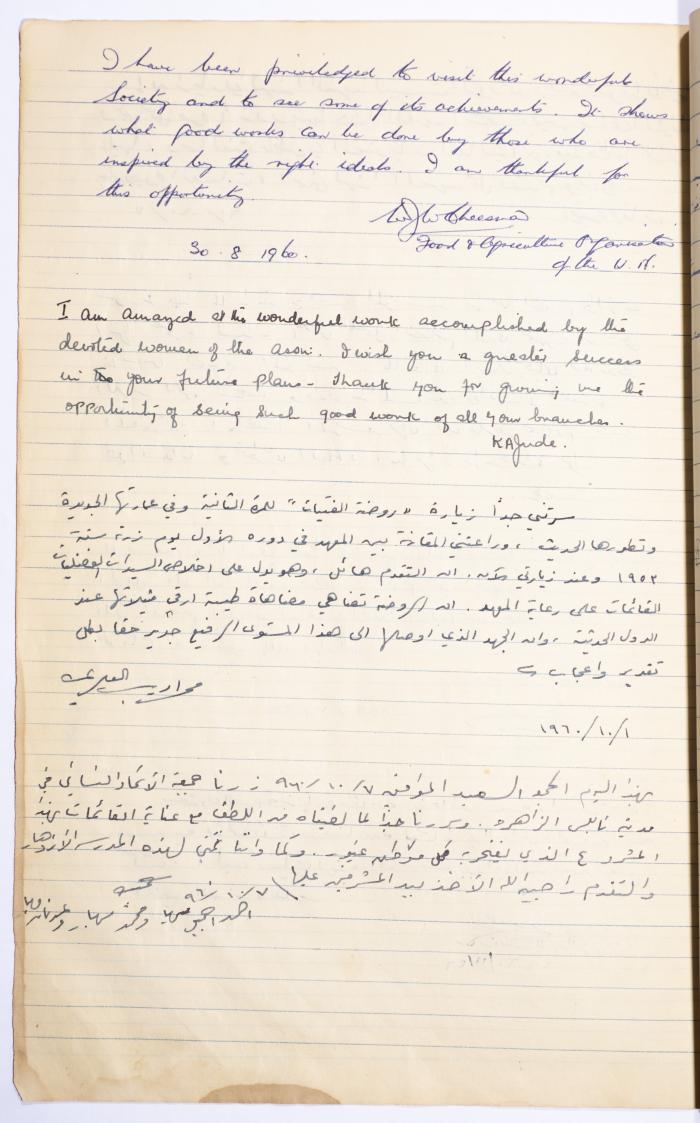 I have been priviledged to visit this wonderful
Society and to see some of its achievements. It shows
what good works can be done by those who are
inspired by the right ideals. I am thankful for
this opportunity.
Food & Agriculture Organisation
of the U.N.
30.8 1960.
I am amazed at the wonderful work accomplished by the
devoted women of the assn. I wish you a greater success
in your future plans - Thank you for giving me the
opportunity of seeing such good work of all your branches.
سرتني جداً زيارة "روضة الفتيات" للمرة الثانية وفي عمارتها الجديدة
وتطورها الحديث، وراعتني المقارنة بين المعهد في دوره الأول يوم زرته سنة
١٩٥٢ وعند زيارتي الآن. ان التقدم هائل، وهو يدل على اخلاص السيدات الفضليات
القائمات على رعاية المعهد. ان الروضة تضاهي مضاهاة طيبة ارقى مثيلاتها عند
الدول الحديثة، وان الجهد الذي اوصلها الى هذا المستوى الرفيع جدير حقا بكل
تقدير واعجاب
١٩٦٠/١٠/١
بهذا اليوم السعيد الموافق ٩٦٠/١٠/٧ زرنا جمعية الاتحاد النسائي في
مدينة نابلس الزاهرة. وسررنا جداً لما لقيناه من اللطف مع عناية القائمات بهذا
المشروع الذي يفتخر به كل مواطن غيور. وكما واننا نتمنى لهذه المدرسة الازدهار
والتقدم راجين الله الأخذ بيد المشرفين عليها
٩٦٠/١٠/٧